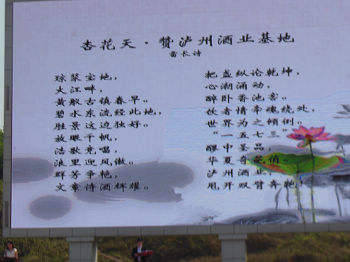 杏花天·赞泸州酒业基地
雷长诗
琼浆宝地，
大江畔，
黄舣古镇春早。
碧水东流经此地，
胜景这边独好。
放眼千帆，
浩歌竞唱，
浪里迎风傲。
群芳争艳，
文章诗酒辉耀。
把盏纵论乾坤，
心潮涌动，
醉卧香池窖。
饮者情牵魂绕处，
世界为之倾倒。
"一五七三"
醴中圣品，
华夏奇葩俏。
泸州酒业，
甩开双臂奔跑。